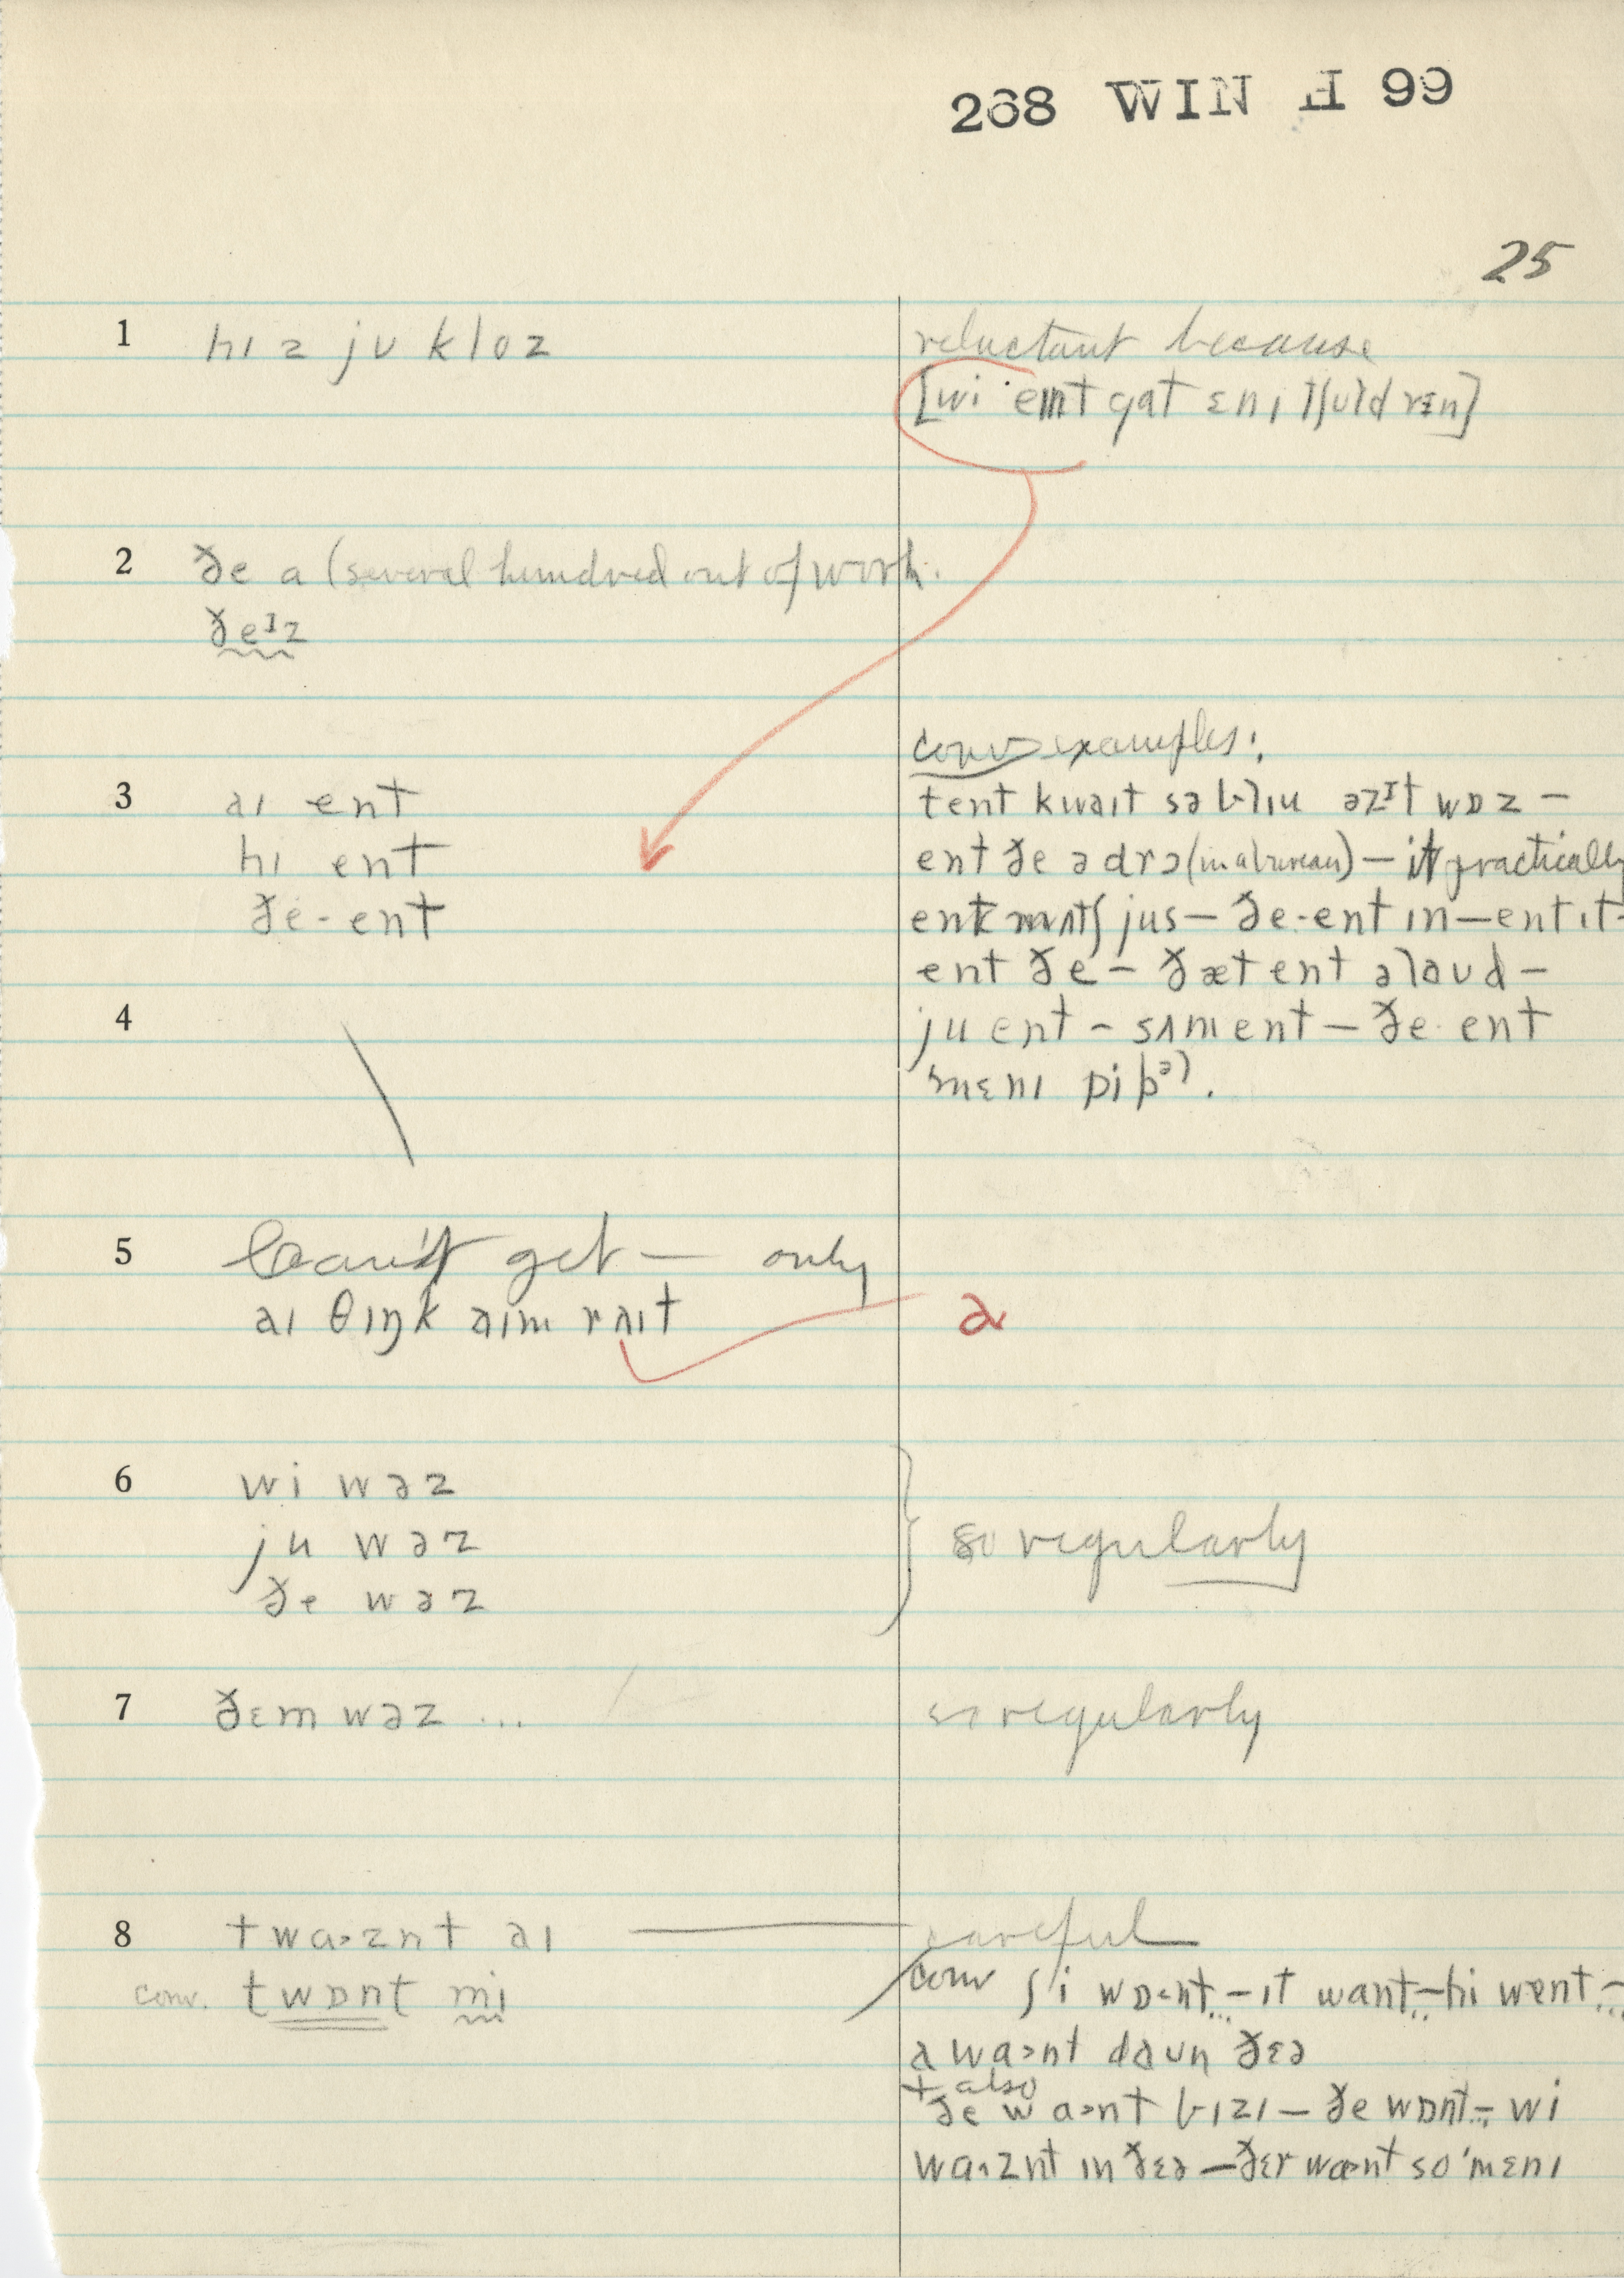 268 WIN H 99
25
1 hɪz ju kloz
reluctant because
[wi ent gat ɛnɪ tʃɪldrɛn]
2 ðe a (several hundred out of work.
ðeɪz
conv examples:
3 aɪ ent
tent kwaɪt sə blu əz ɪt wɒz –
hɪ ent
ent ðe ə drɔ (in a bureau) – it practically
ðe·ent
ent mʌtʃ jus – ðe·ent ɪn – ent ɪt –
ent ðe – ðæt ent əlaud –
4
ju ent – sʌm ent – ðe· ent
mɛnɪ pipəl.
5 can't get — only
aɪ θɪŋk aɪm raɪt
a
6 wi wəz
ju wəz
so regularly
ðe wəz
7 ðɛm wəz ...
so regularly
8 twa>znt aɪ
careful
conv. twɒnt mi
conv ʃi wɒ<nt – ɪt want – hi wɐnt –
a wa>nt daun ðɛə
+ also
ðe wa>nt bɪzɪ – ðe wɒnt – wi
wa>znt ɪn ðɛə – ðɛr wa>nt so 'mɛnɪ